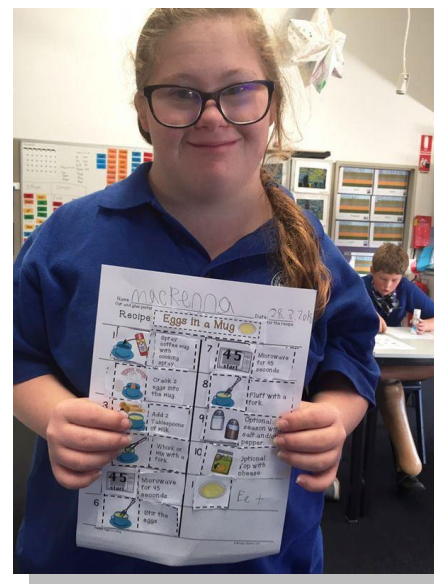 Name Mackenna
Date 28.3.
Recipe Eggs in a Mug
1
Spray
coffee mug
with
cooking
spray.
Crack 2
eggs into
the mug.
3
Add 2
Tablespoons
of milk.
Whisk or
mix with a
fork.
45
start
Microwave
for 45
seconds.
6
Stir the
eggs.
7
45
start
Microwave
for 45
seconds.
8
Fluff with a
fork.
9
Optional:
season with
salt and/or
pepper.
10
Optional:
Top with
cheese.